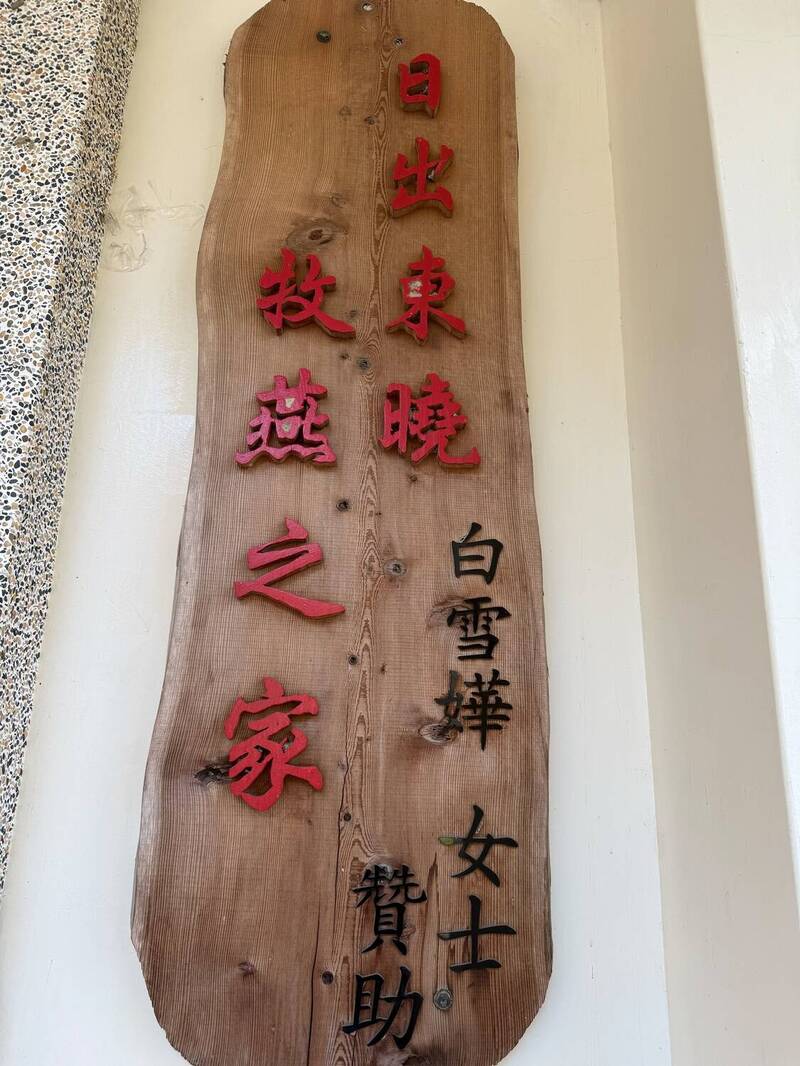 日出東曉
牧燕之家
白雪嬅 女士
贊助